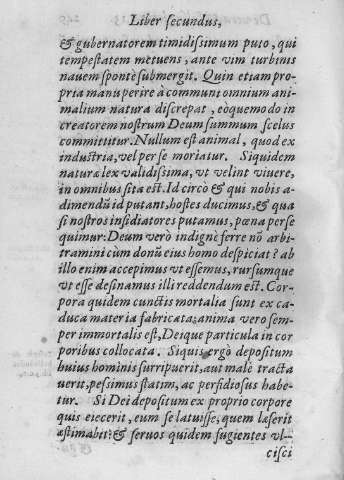 Liber secundus,
& gubernatorem timidissimum puto, qui
tempestatem metuens, ante vim turbinis
nauem sponte submergit. Quin etiam pro-
pria manu perire à communi omnium ani-
malium natura discrepat, eòque modo in
creatorem nostrum Deum summum scelus
committitur. Nullum est animal, quod ex
industria, vel per se moriatur. Siquidem
naturæ lex validissima, vt velint viuere,
in omnibus sita est. Id circò & qui nobis a-
dimendũ id putant, hostes ducimus, & qua
si nostros insidiatores putamus, pœna perse
quimur: Deum verò indignè ferre nõ arbi-
tramini cùm donũ eius homo despiciat? ab
illo enim accepimus vt essemus, rursumque
vt esse desinamus illi reddendum est. Cor-
pora quidem cunctis mortalia sunt ex ca-
duca materia fabricata: anima vero sem-
per immortalis est, Deique particula in cor
poribus collocata. Siquis ergò depositum
huius hominis surripuerit, aut malè tracta
uerit, pessimus statim, ac perfidiosus habe-
tur. Si Dei depositum ex proprio corpore
quis eiecerit, eum se latuisse, quem læserit
æstimabit: & seruos quidem fugientes vl-
cisci